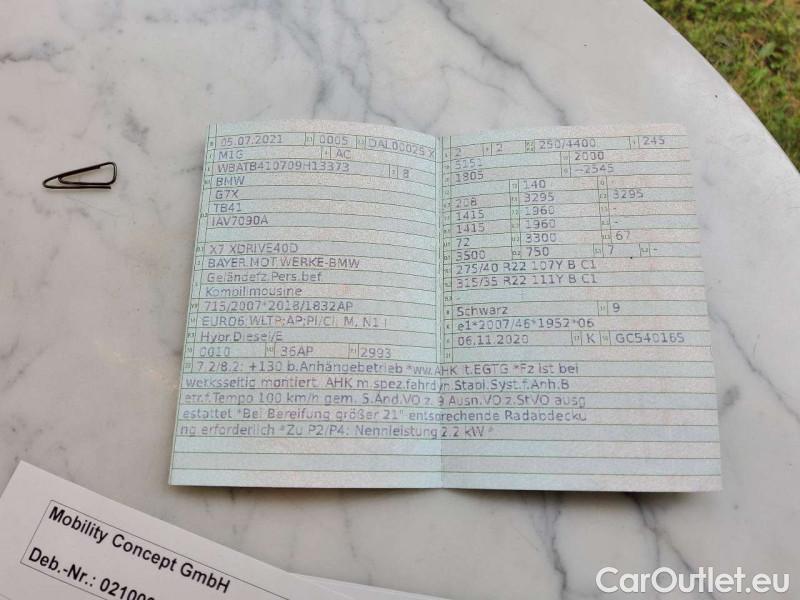 05.07.2021 0005 DAL00025 X
M1G AC
WBATB410709H13373 8
BMW
G7X
TB41
IAV7090A
X7 XDRIVE40D
BAYER.MOT.WERKE-BMW
Geländefz.Pers.bef.
Kombilimousine
715/2007*2018/1832AP
EURO6;WLTP;AP;PI/CI; M, N1 I
Hybr.Diesel/E
0010 36AP 2993
2 2 250/4400 245
5151 2000
1805 -2545
140
208 3295 3295
1415 1960 -
1415 1960 -
72 3300 67
3500 750 7 -
275/40 R22 107Y B C1
315/35 R22 111Y B C1
-
Schwarz 9
e1*2007/46*1952*06
06.11.2020 K GC540165
7.2/8.2: +130 b.Anhängebetrieb *ww.AHK lt.EGTG *Fz ist bei
werksseitig montiert. AHK m.spez.fahrdyn.Stabi.Syst.f.Anh.B
etr.f.Tempo 100 km/h gem. 5.Änd.VO z. 9.Ausn.VO z.StVO ausg
estattet *Bei Bereifung größer 21" entsprechende Radabdecku
ng erforderlich *Zu P2/P4: Nennleistung 2.2 kW *
Mobility Concept GmbH
Deb.-Nr.: 02100
CarOutlet.eu